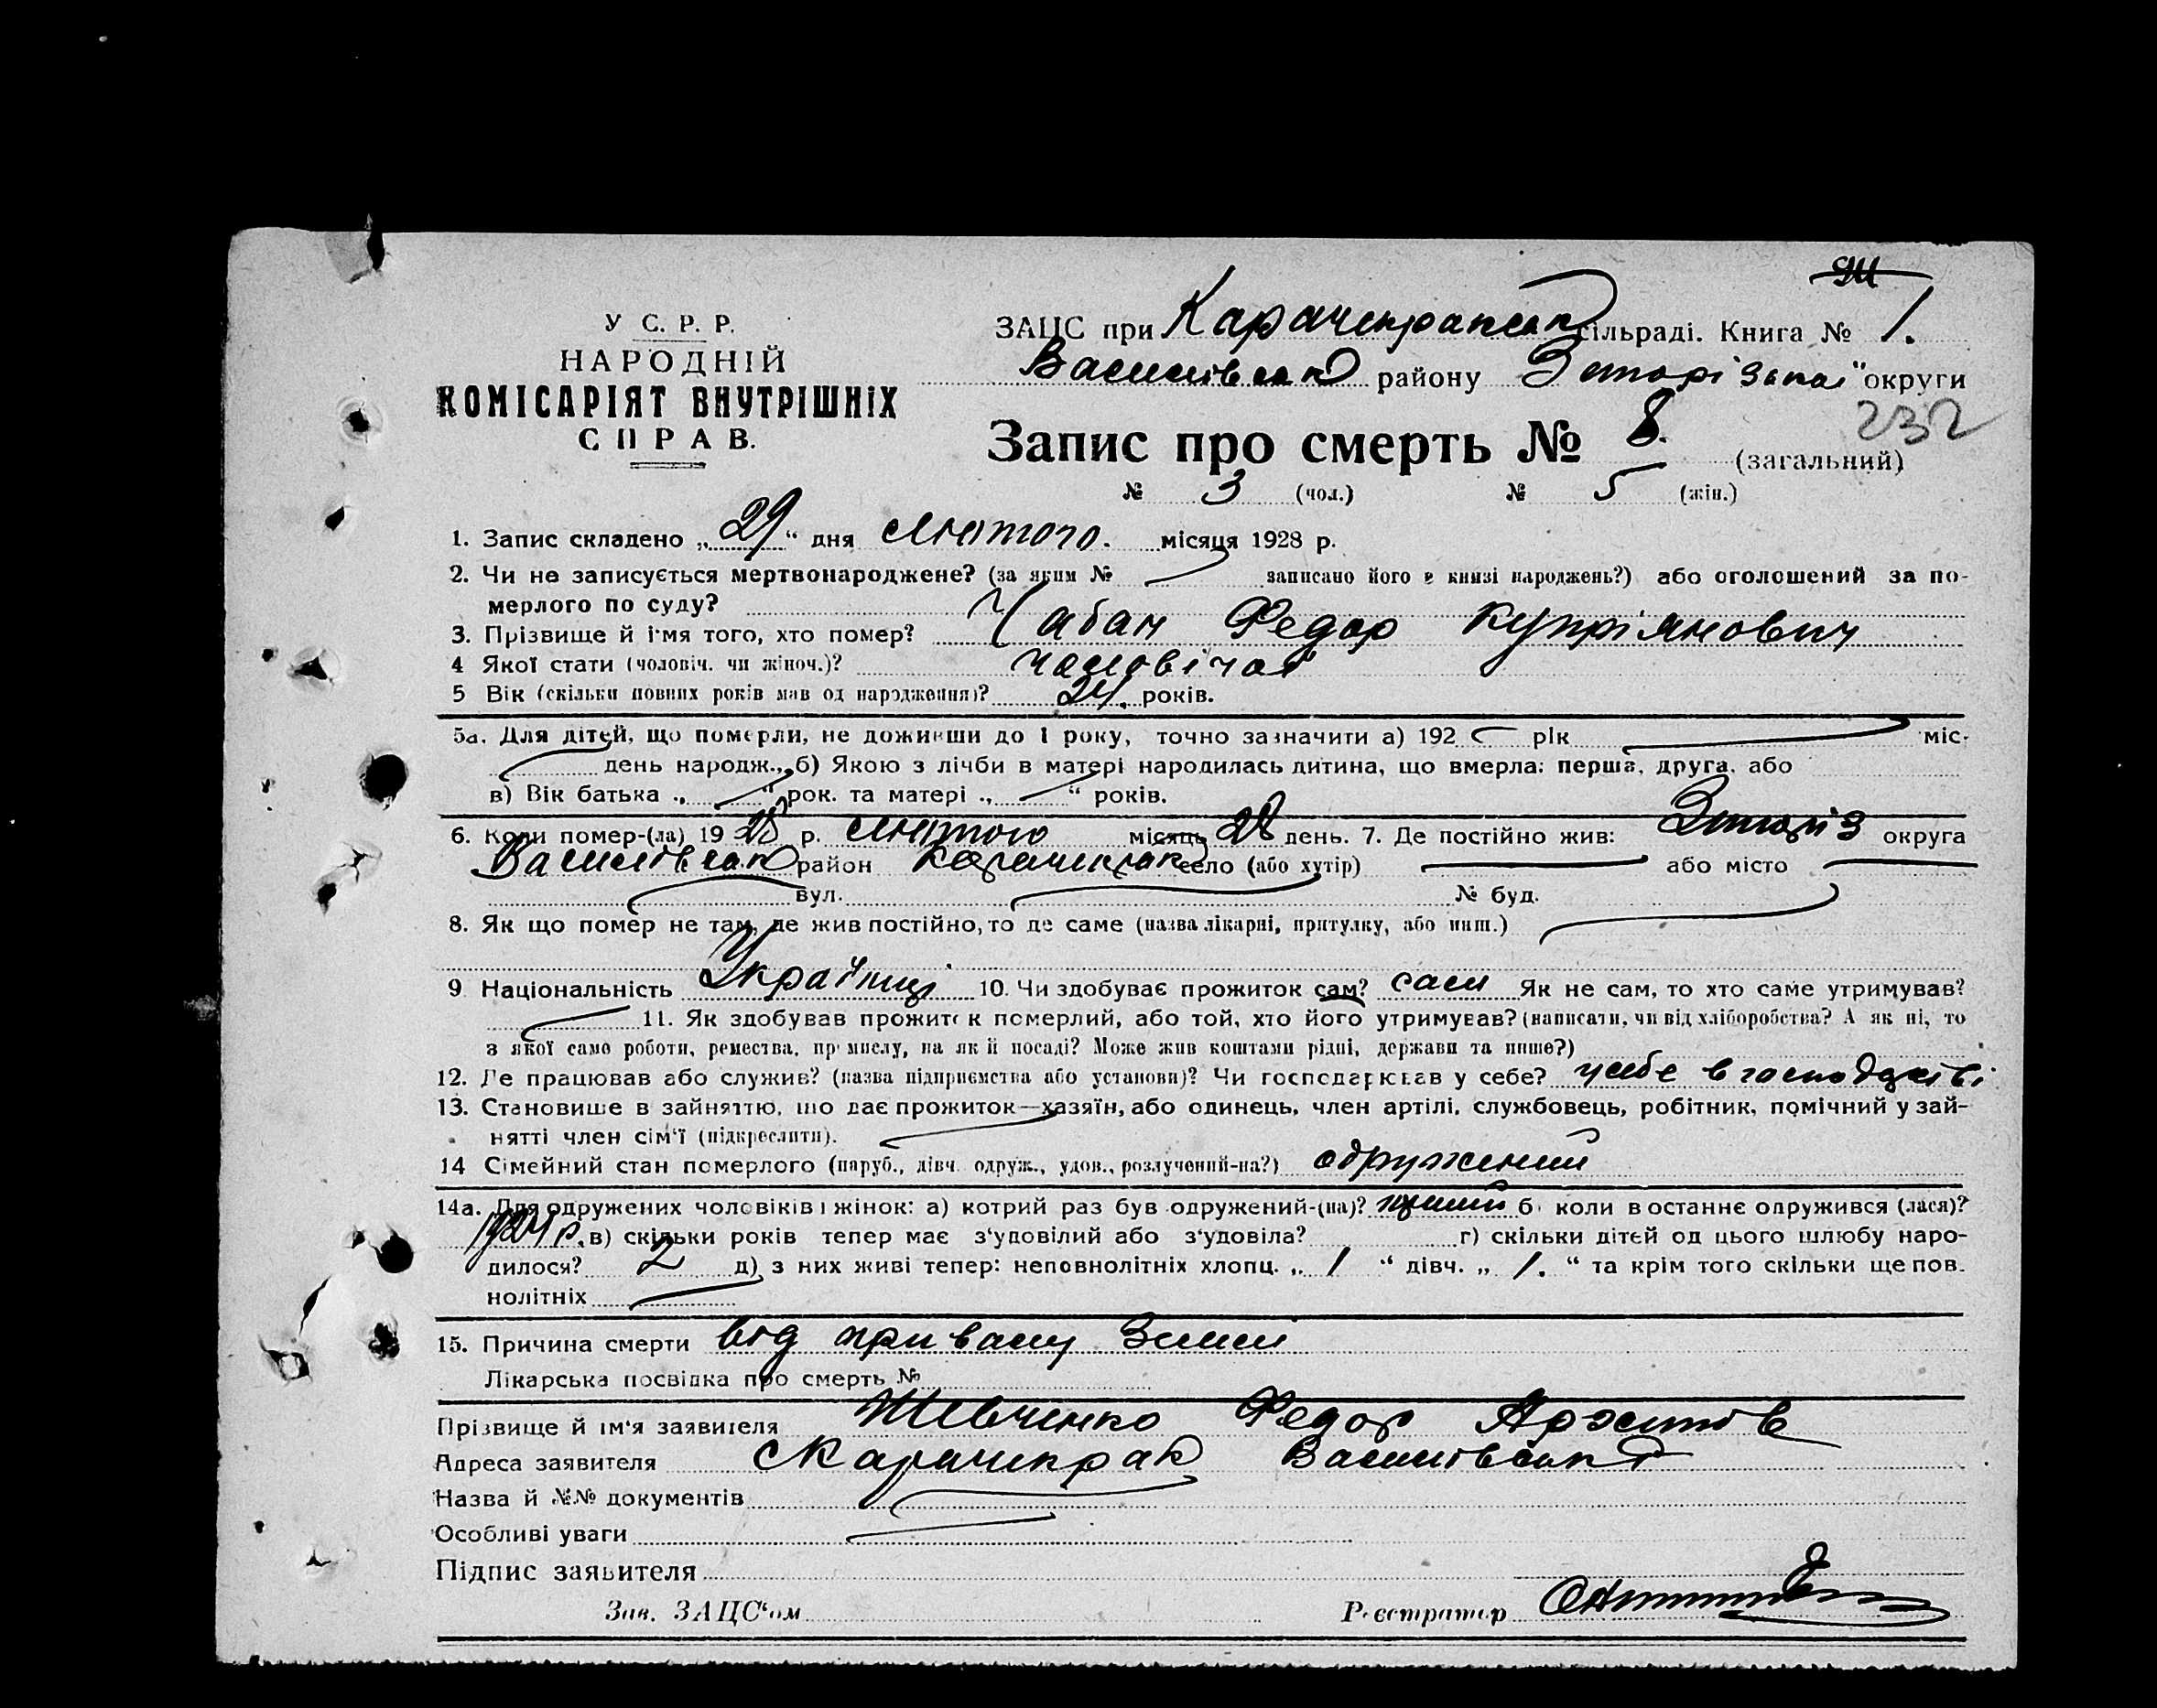 У С. Р. Р.
НАРОДНІЙ
КОМІСАРІЯТ ВНУТРІШНІХ
СПРАВ.
ЗАЦС при Карачекрапськ сільраді. Книга № 1.
Василівськ району Запорізької округи
232
Запис про смерть № 8. (загальний)
№ 3 (чол.) № 5 (жін.)
1. Запис складено „29“ дня Лютого. місяця 1928 р.
2. Чи не записується мертвонароджене? (за яким № записано його в книзі народжень?) або оголошений за по-
мерлого по суду?
3. Прізвище й імя того, хто помер? Чабан Федор Купріянович
4 Якої стати (чоловіч. чи жіноч.)? чоловічої
5 Вік (скільки повних років мав од народження)? 24. років.
5а. Для дітей, що померли, не доживши до 1 року, точно зазначити а) 192 рік міс.
день народж., б) Якою з лічби в матері народилась дитина, що вмерла: перша, друга, або
в) Вік батька „ “ рок. та матері „ “ років.
6. Коли помер-(ла) 1928 р. Лютого місяць 28 день. 7. Де постійно жив: Запоріз округа
Василівськ район Карачекрак село (або хутір) або місто
вул. № буд.
8. Як що помер не там, де жив постійно, то де саме (назва лікарні, притулку, або инш.)
9 Національність Українці 10. Чи здобуває прожиток сам? сам Як не сам, то хто саме утримував?
11. Як здобував прожиток померлий, або той, хто його утримував? (написати, чи від хліборобства? А як ні, то
з якої само роботи, ремества, промислу, на якій посаді? Може жив коштами рідні, держави та инше?)
12. Де працював або служив? (назва підприємства або установи)? Чи господарював у себе? у себе в господарстві
13. Становище в зайняттю, що дає прожиток—хазяїн, або одинець, член артілі, службовець, робітник, помічний у зай-
нятті член сім‘ї (підкреслити).
14 Сімейний стан померлого (паруб., дівч. одруж., удов., розлучений-на?) одружений
14а. Для одружених чоловіків і жінок: а) котрий раз був одружений-(на)? перший б. коли в останнє одружився (лася)?
1924 р. в) скільки років тепер має з‘удовілий або з‘удовіла? г) скільки дітей од цього шлюбу наро-
дилося? 2 д) з них живі тепер: неповнолітніх хлопц. „ 1 “ дівч. „ 1. “ та крім того скільки ще пов-
нолітніх
15. Причина смерти від привалу Земли
Лікарська посвідка про смерть №
Прізвище й ім‘я заявителя Шевченко Федор Архипов
Адреса заявителя с Карачекрак Василівськ
Назва й №№ документів
Особливі уваги
Підпис заявителя
Зав. ЗАЦС‘ом Реєстратор